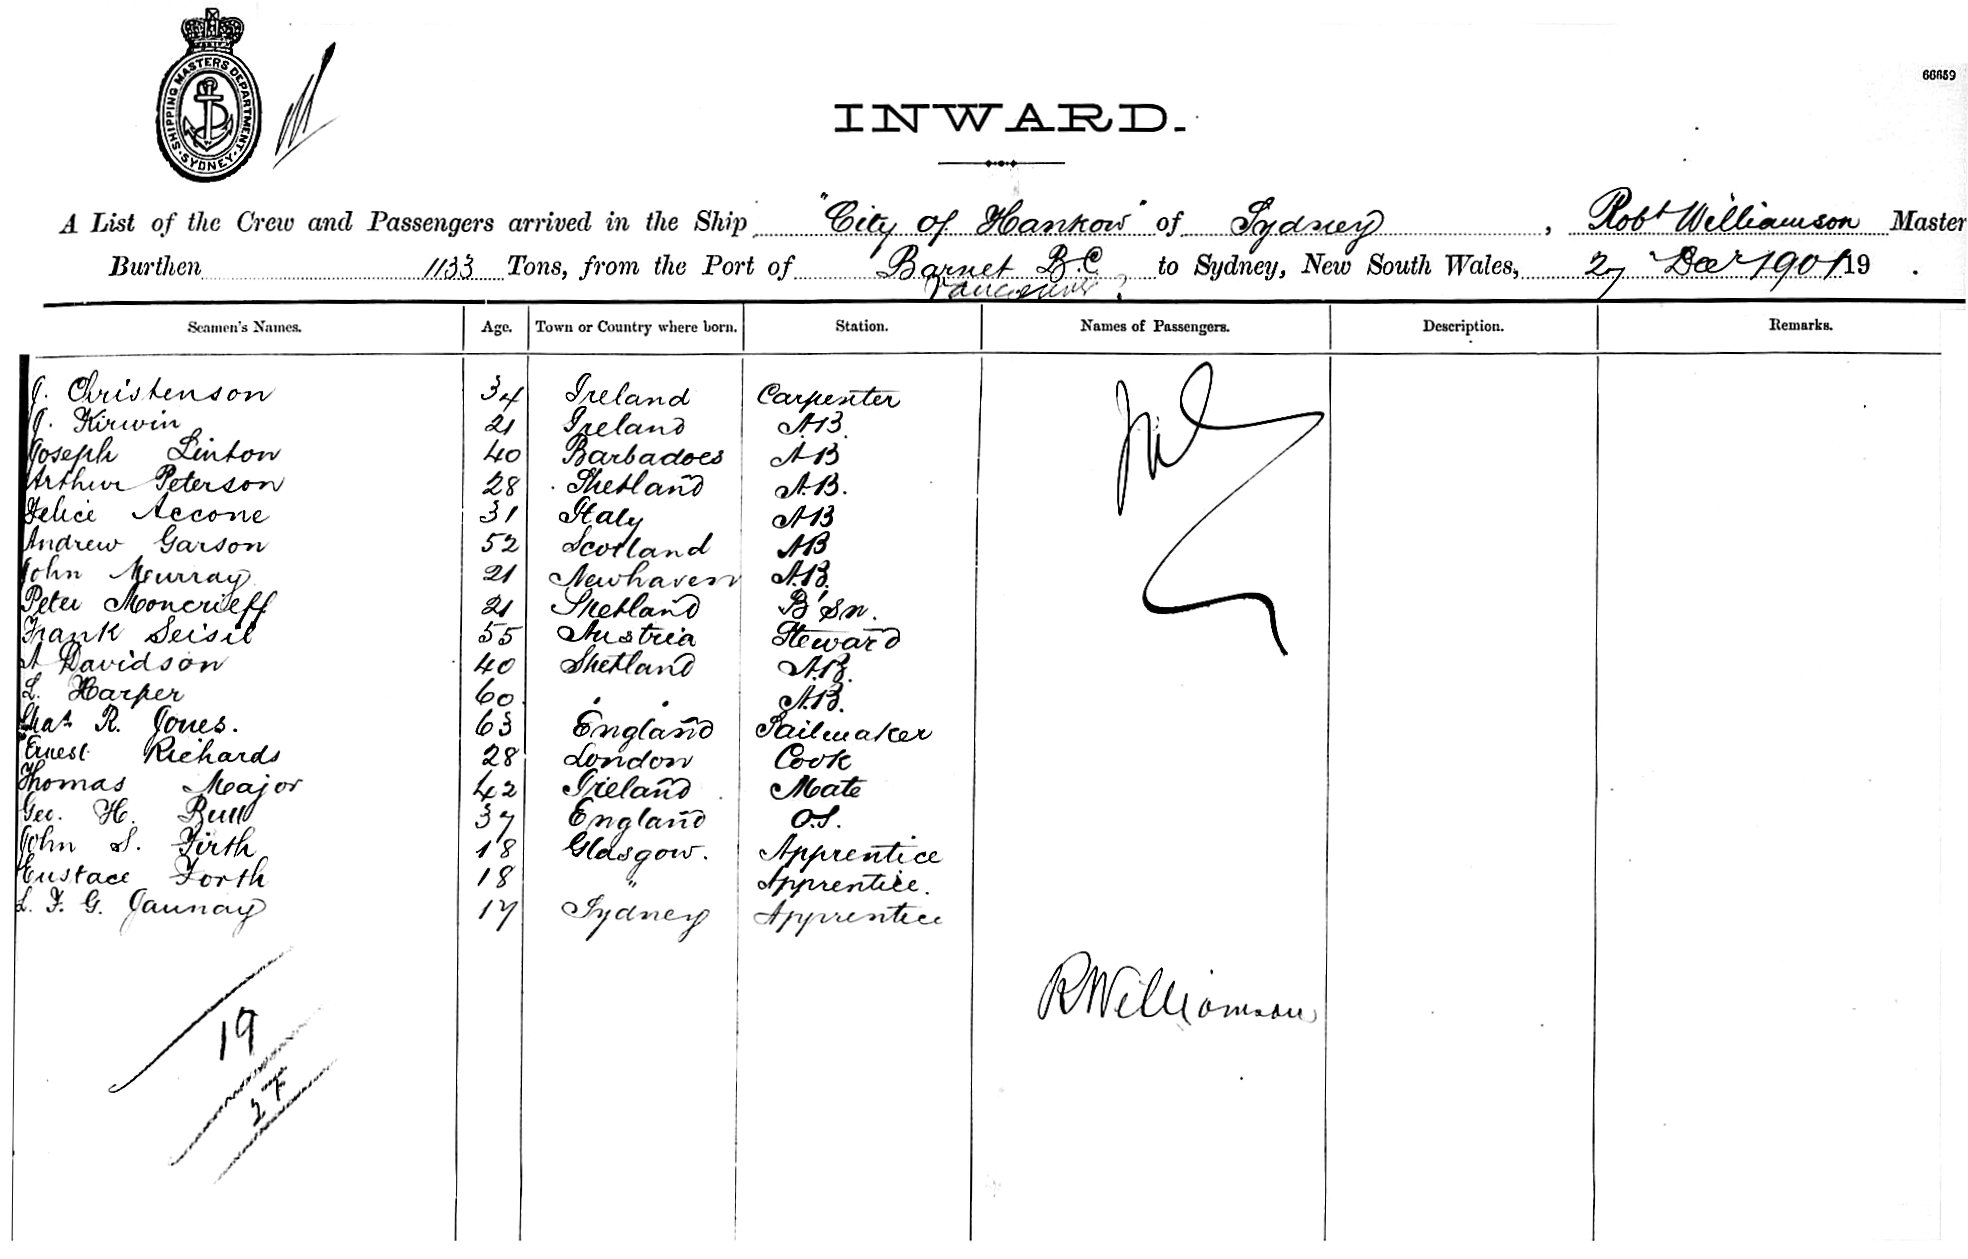 SHIPPING MASTERS DEPARTMENT
SYDNEY
66659
INWARD.
A List of the Crew and Passengers arrived in the Ship "City of Hankow" of Sydney, Robt Williamson Master
Burthen 1133 Tons, from the Port of Barnet B.C to Sydney, New South Wales, 27 Decr 1901 19 .
Vancouver
Seamen's Names. Age. Town or Country where born. Station. Names of Passengers. Description. Remarks.
J. Christenson 34 Ireland Carpenter Nil
J. Kirwin 21 Ireland A.B.
Joseph Linton 40 Barbadoes A.B
Arthur Peterson 28 Shetland A.B.
Felice Accone 31 Italy A.B
Andrew Garson 52 Scotland AB
John Murray 21 Newhaven A.B.
Peter Moncrieff 21 Shetland B'sn.
Frank Seisil 55 Austria Steward
A Davidson 40 Shetland A.B.
L. Harper 60 " " A.B.
Chas R. Jones. 63 England Sailmaker
Ernest Richards 28 London Cook
Thomas Major 42 Ireland Mate
Geo. H. Bull 37 England O.S.
John S. Firth 18 Glasgow. Apprentice
Eustace Forth 18 " Apprentice.
L. F. G. Jaunay 17 Sydney Apprentice
R Williamson
19